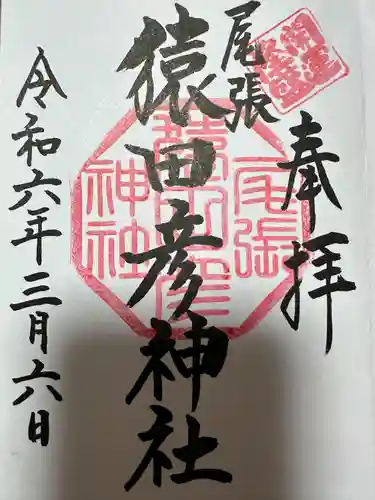 奉拝
尾張
猿田彦神社
令和六年三月六日
尾張
猿田彦
神社
開運